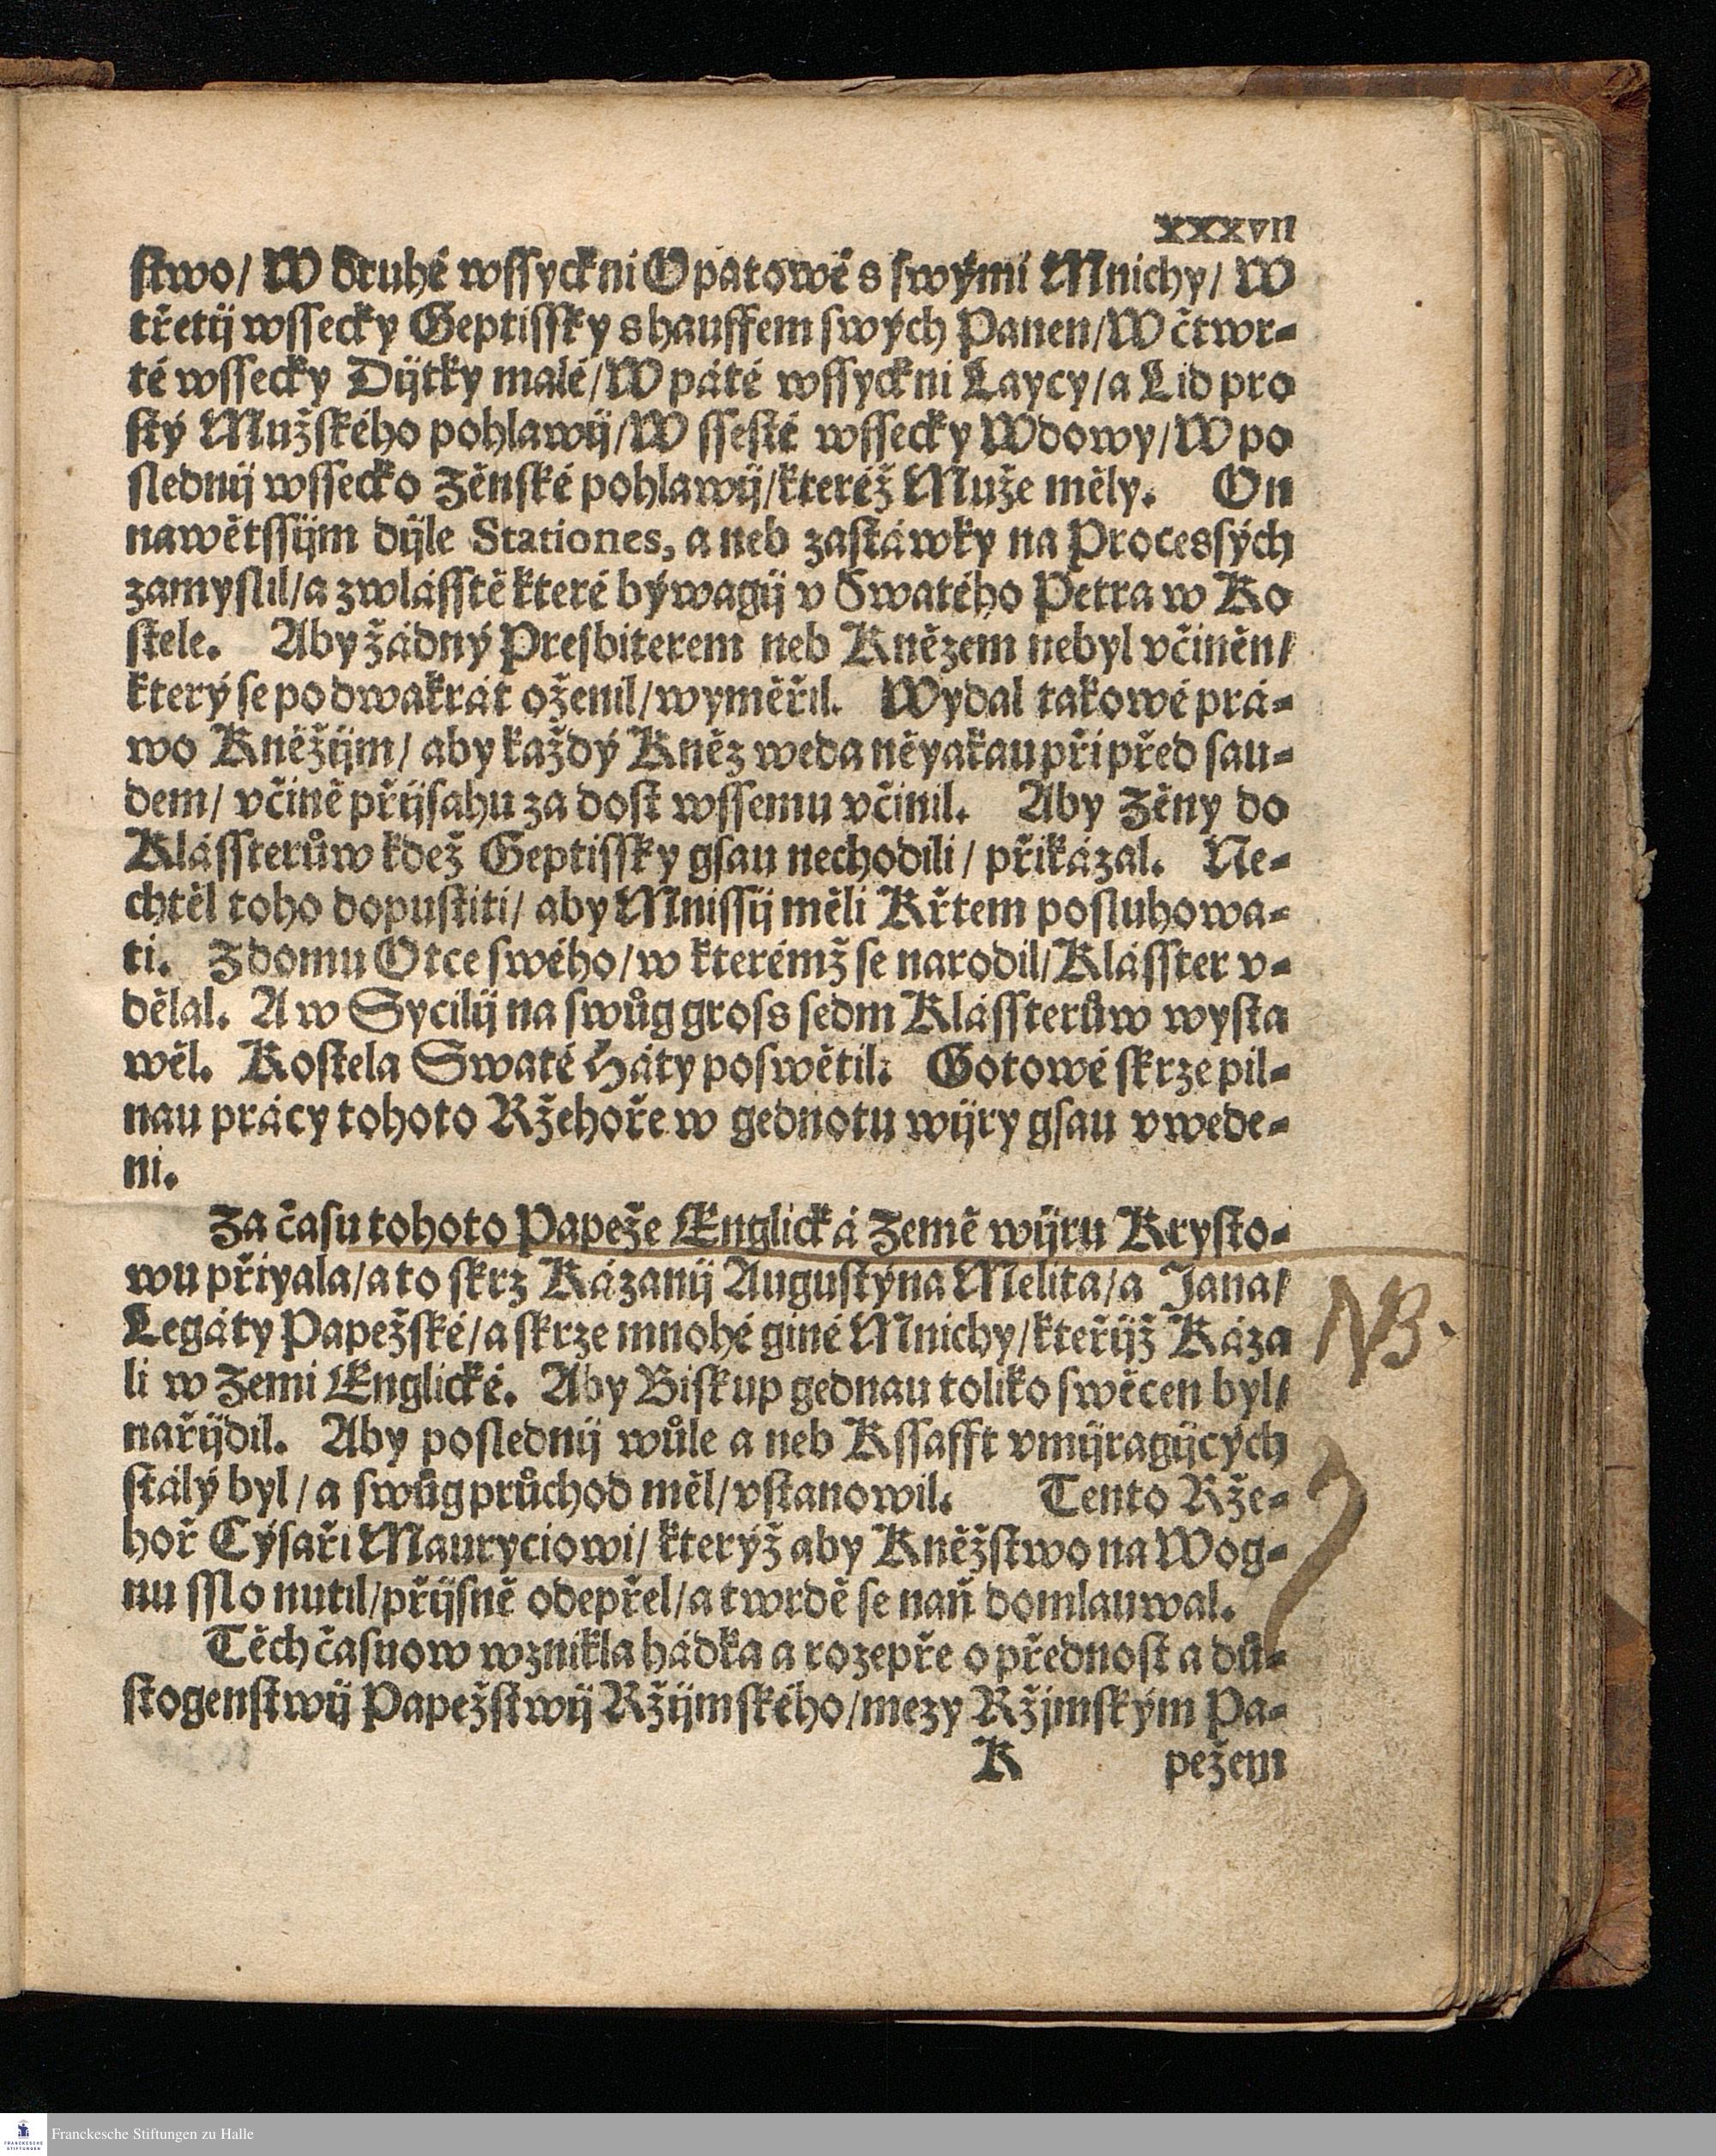 XXXVII
ſtwo/ W druhé wſſyckni Opatowé s ſwými Mnichy/ W
třetij wſſecky Geptiſſky s hauffem ſwých Panen/W čtwr-
té wſſecky Dijtky malé/W páté wſſyckni Laycy/a Lid pro
ſtý Mužſkého pohlawij/W ſſeſté wſſecky Wdowy/W po
ſlednij wſſecko Zěnſké pohlawij/kteréž Muže měly. On
nawětſſijm dijle Stationes, a neb zaſtáwky na Procesſých
zamyſlil/a zwláſſtě které býwagij v Swatého Petra w Ko
ſtele. Aby žádný Presbiterem neb Knězem nebyl včiněn/
který ſe po dwakrát oženil/wyměřil. Wydal takowé prá-
wo Kněžijm/ aby každý Kněz weda něyakau při před ſau-
dem/ včině přijſahu za doſt wſſemu včinil. Aby Zěny do
Kláſſterůw kdež Geptiſſky gſau nechodili/ přikázal. Ne-
chtěl toho dopuſtiti/ aby Mniſſij měli Křtem poſluhowa-
ti. Z domu Otce ſwého/w kterémž ſe narodil/Kláſſter v-
dělal. A w Sycilij na ſwůg groſs ſedm Kláſſterůw wyſta
wěl. Koſtela Swaté Háty poſwětil: Gotowé ſkrze pil-
nau prácy tohoto Ržehoře w gednotu wijry gſau vwede-
ni.
Za čaſu tohoto Papeže Englická Země wijru Kryſto-
wu přiyala/a to ſkrz Kázanij Auguſtýna Melita/a Jana/
Legáty Papežſké/a ſkrze mnohé giné Mnichy/kteřijž Káza
li w Zemi Englické. Aby Biſkup gednau toliko ſwěcen byl/
nařijdil. Aby poſlednij wůle a neb Kſſafft vmijragijcých
ſtálý byl/ a ſwůg průchod měl/vſtanowil. Tento Rže-
hoř Cýſaři Mauryciowi/ kterýž aby Kněžſtwo na Wog-
nu ſſlo nutil/přijſně odepřel/a twrdě ſe naň domlauwal.
Těch čaſuow wznikla hádka a rozepře o přednoſt a dů-
ſtogenſtwij Papežſtwij Ržijmſkého/mezy Ržjmſkým Pa-
K pežem
NB.
Franckesche Stiftungen zu Halle
FRANCKESCHE
STIFTUNGEN